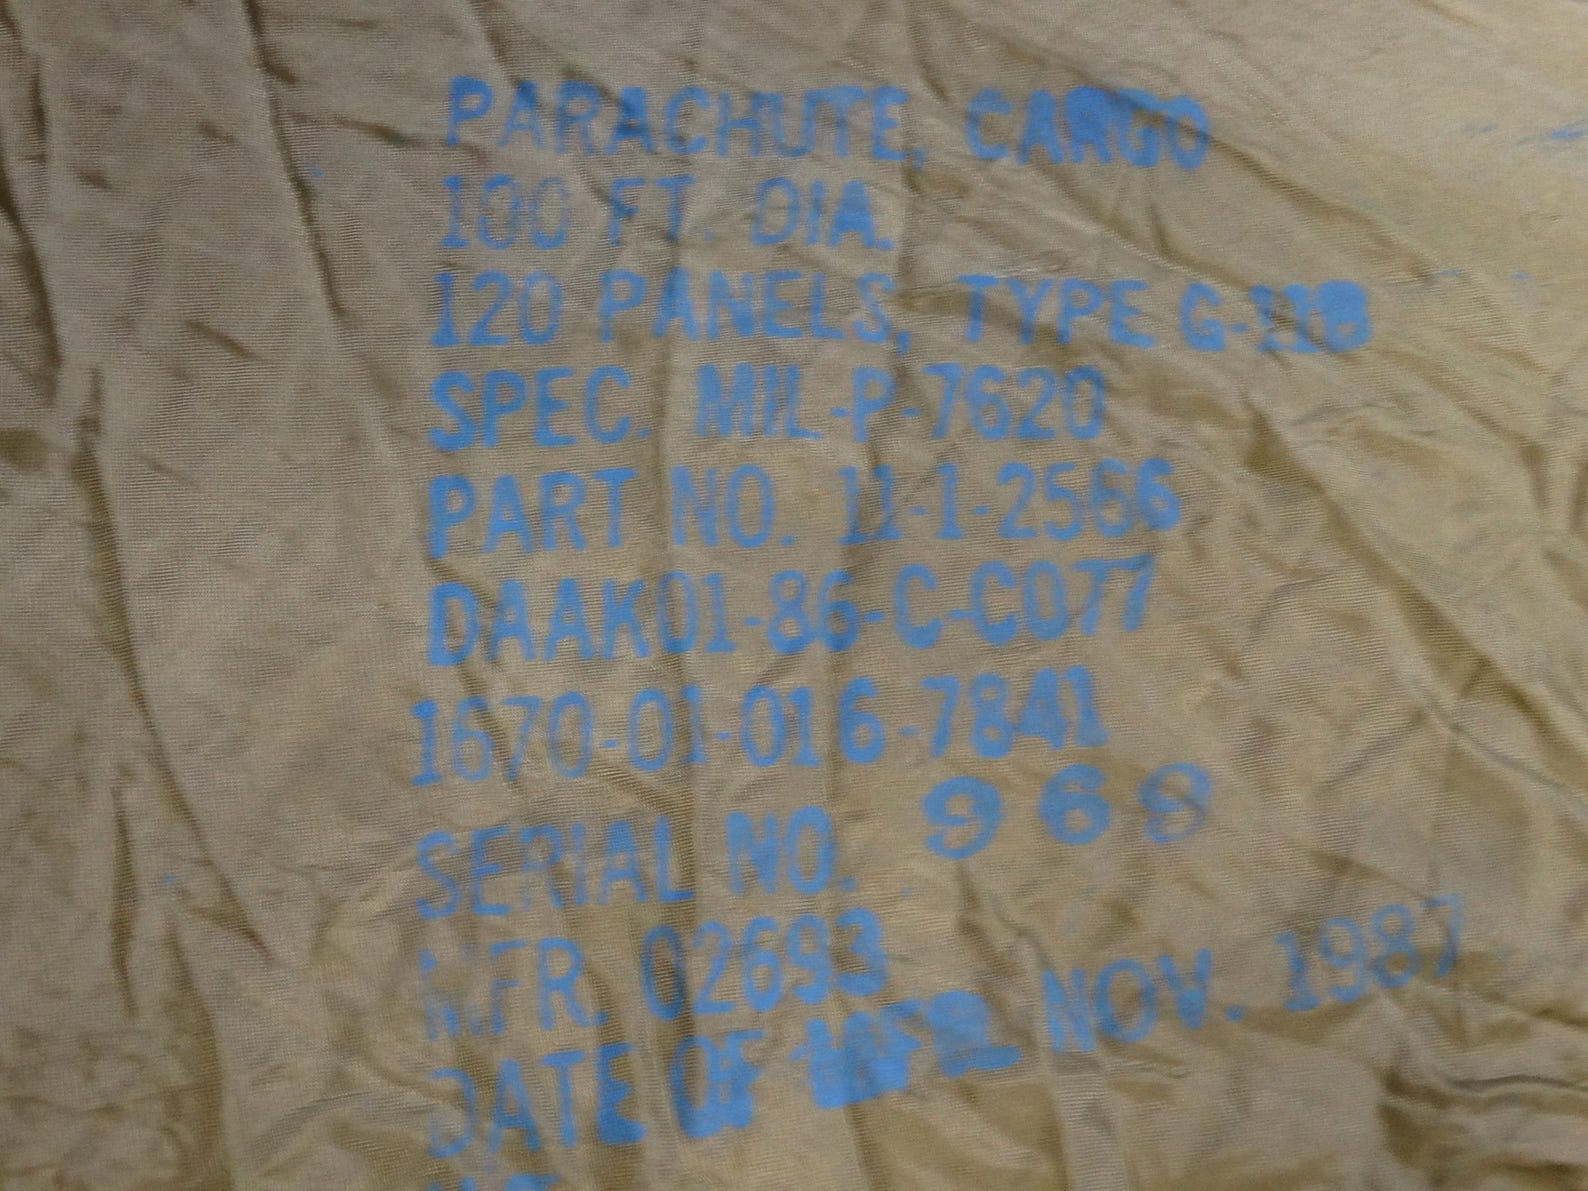 PARACHUTE, CARGO
100 FT. DIA.
120 PANELS, TYPE G-11B
SPEC. MIL-P-7620
PART NO. 11-1-2566
DAAK01-86-C-C077
1670-01-016-7841
SERIAL NO. 968
MFR. 02693
DATE OF MFR. NOV. 1987